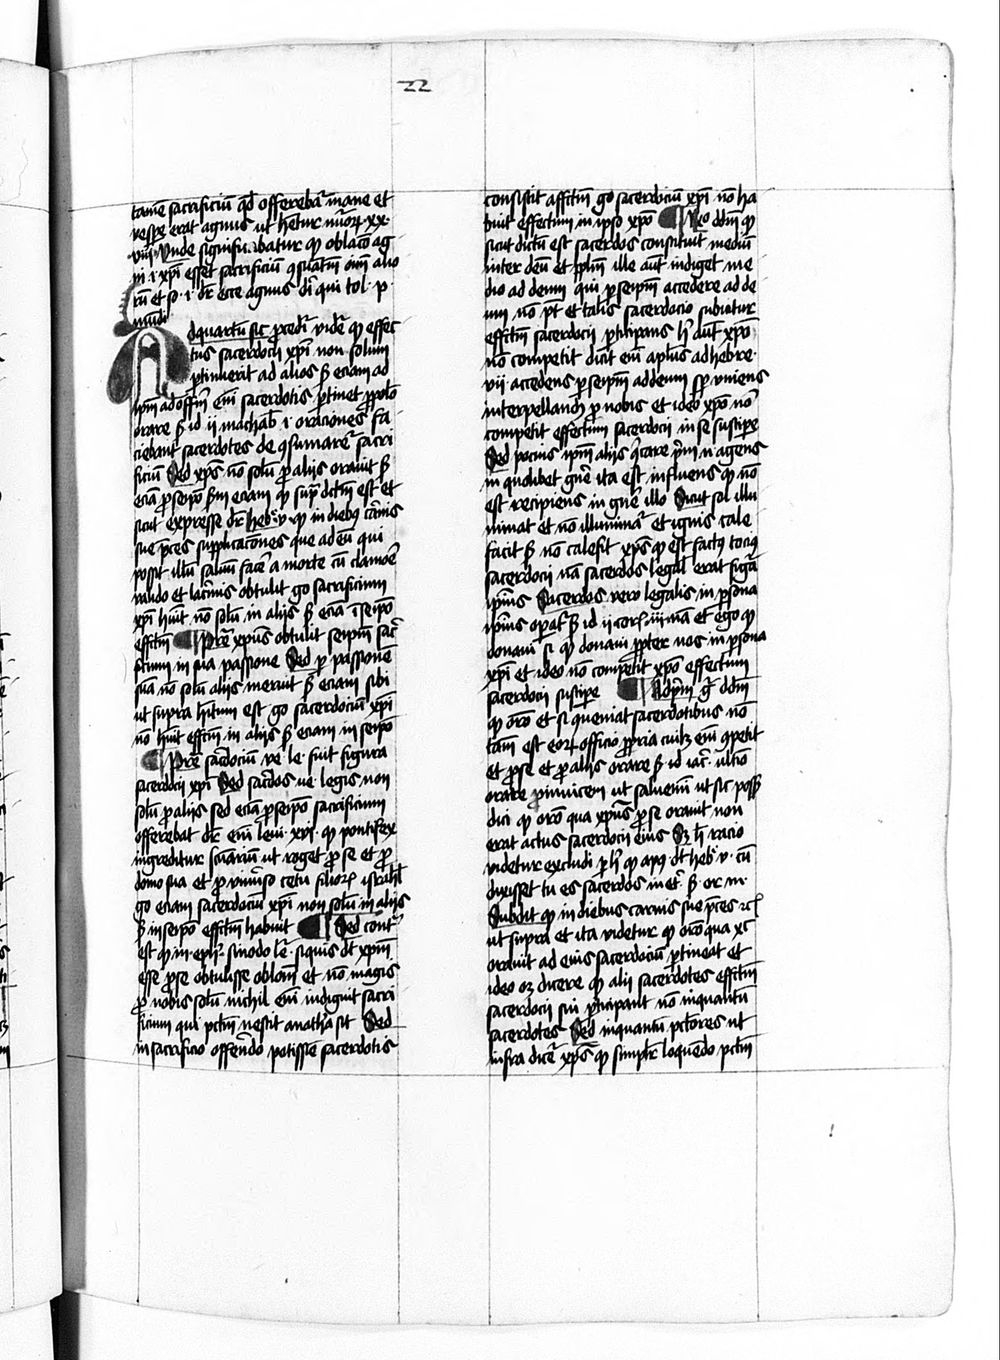 22
tamē sacrificiū qd offerebaͭ mane et
vespe erat agnus ut hētur nūorꝝ xx
viiiº Unde significabatur qꝫ oblaco ag
ni .i. xpi esset sacrificiū ꝯsūatm oīm alio
rū et sº .i. dr ecce agnus di qui tol. p.
mūdi
Adquartū sic procedir videͭ qꝫ effec
tus sacerdocii xpi non solum
ꝑtinuerit ad alios sꝫ eciam ad
ipm ad offm em sacerdotis ꝑtinet pro pplo
orare sꝫ id ii machab i oraciones fa
ciebant sacerdotes de ꝯsumareͭ sacri
ficiū Sed xpc nō solū pro aliis orauit sꝫ
eciā pro seipo sm eciam qꝫ supra dctm est et
sicut expresse dr hebº v qꝫ in diebꝫ carnis
sue pces supplicacones que ad eū qui
possit illū saluū facē a morte cū clamoe
valido et lacrimis obtulit go sacrificium
xpi huit nō solū in aliis sꝫ eciā ī seipo
effctm Pretea xpus obtulit seipm sacri
ficium in sua passione Sed per passionē
suā nō solū aliis meruit sꝫ eciam sibi
ut supra hitum est go sacerdociū xpi
nō huit effctm in aliis sꝫ eciam in seipo
Pretea sacerdociū ve. le. fuit figura
sacerdocii xpi Sed sacerdos ve. legis non
solū pro aliis sed eciā pro seipo sacrificium
offerebat dr em leui. xvi. qꝫ pontifex
ingreditur sctuariū ut roget pro se et pro
domo sua et pro vniuerso cetu filiorꝝ israhel
go eciam sacerdociū xpi non solū in aliis
sꝫ in seipo effctm habuit Sed contra
est qꝫ in eph. sinodo leͭ siquis dt xpm
esse pro se obtulisse oblonē et nō magis
pro nobis solū nichil em indiguit sacri
ficium qui pctm nescit anatha sit Sed
in sacrificio offerēdo potissie sacerdotis
consistit affctm go sacerdociū xpi nō ha
buit effectum in ipso xpo Rºeo ddm qꝫ
sicut dictū est sacerdos constituit mediū
inter deū et plm ille aut indiget me
dio ad deum qui per seipm accedere ad de
um nō pt et talis sacerdocio subicitur
effctm sacerdocii ꝑticipans h aut xpo
nō competit dicit em aplus ad hebre.
vii. accedens per seipm ad deum semper viuens
interpellandū pro nobis et ideo xpo nō
competit effectum sacerdocii in se suscipe
Sed pocius ipm aliis ꝯicare prim n agens
in quolibet gnē ita est influens qꝫ nō
est recipiens in gnē illo Sicut sol illu
minat et nō illuminaͭ et ignis cale
facit sꝫ nō calefit xps qꝫ est factꝰ tociꝰ
sacerdocii nā sacerdos legal erat figᵃ
ipius Sacerdos vero legalis in psona
ipius opabaͭ sꝫ id ii corͭ. iii nā et ego qꝫ
donaui si qꝫ donaui ppter uos in psona
xpi et ideo nō competit xpo effectum
sacerdocii suscipe Ad pm g ddm
qꝫ oro et si ꝯueniat sacerdotibus nō
tam est eorꝝ officio ppria cuilꝫ em ꝯpetit
et pro se et pro aliis orare sꝫ id iac. ultio
orare pro inuicem ut saluemī ut sic poss
dici qꝫ oro qua xpus pro se orauit non
erat actus sacerdocii eius Sꝫ h racio
videtur excludi per h qꝫ apꝰ dt hebº v. cū
dixisset tu es sacerdos in eͭ sꝫ or. m.
Subdit qꝫ in diebus carnis sue pces ꝛcͭ
ut supra et ita videtur qꝫ oro qua xc
orauit ad eius sacerdociū ꝑtineat et
ideo oꝫ dicere qꝫ alii sacerdotes effctm
sacerdocii sui ꝑticipant nō inquantū
sacerdotes Sed inquantū pctores ut
infra diceͭ xps qꝫ simplr loquendo pctm